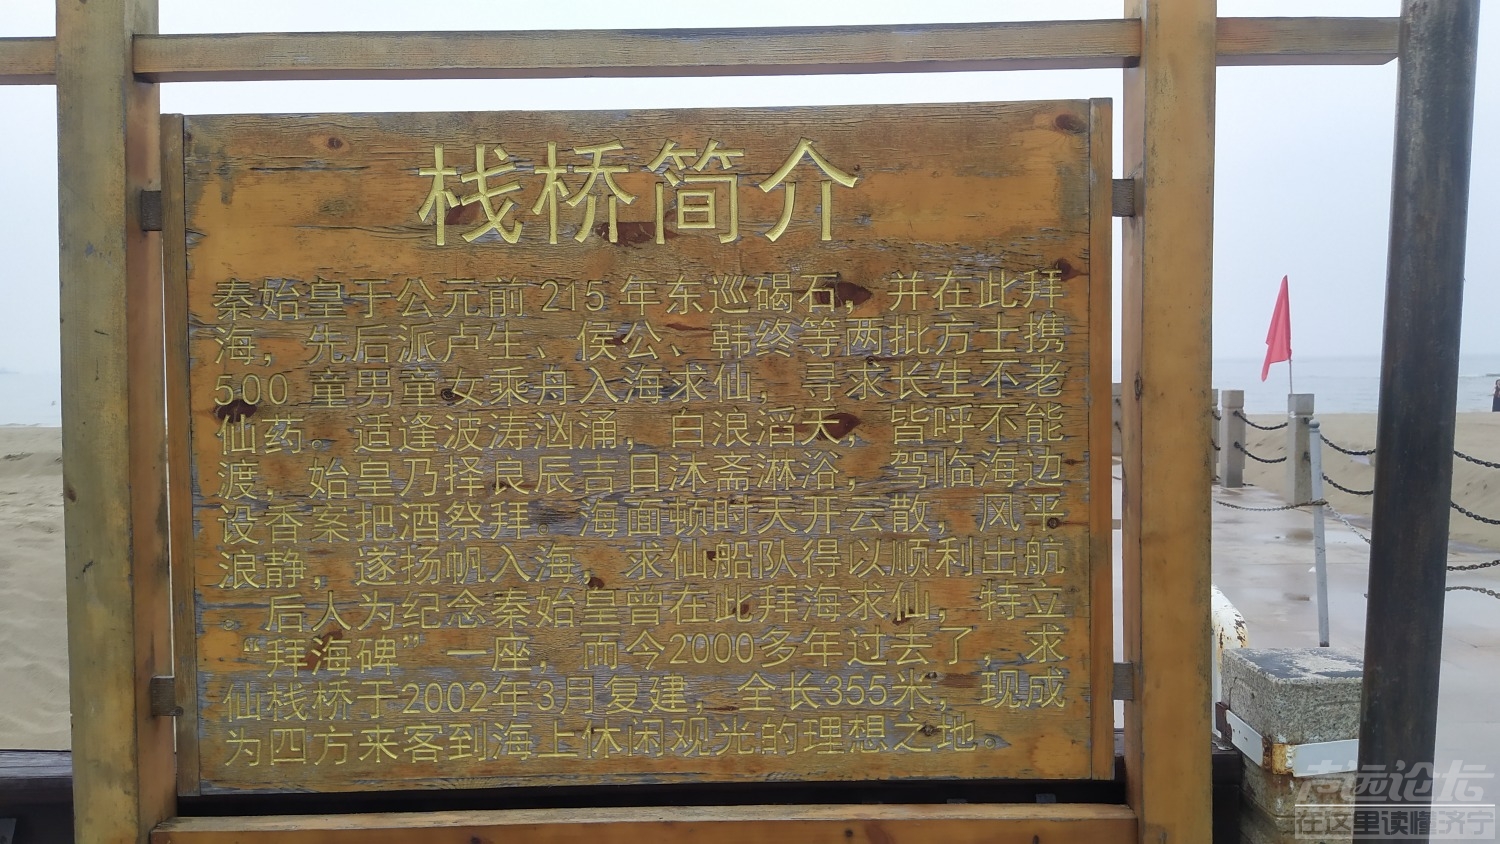 栈桥简介
秦始皇于公元前215年东巡碣石，并在此拜
海，先后派卢生、侯公、韩终等两批方士携
500童男童女乘舟入海求仙，寻求长生不老
仙药。适逢波涛汹涌，白浪滔天，皆呼不能
渡，始皇乃择良辰吉日沐斋淋浴，驾临海边
设香案把酒祭拜。海面顿时天开云散，风平
浪静，遂扬帆入海，求仙船队得以顺利出航
。后人为纪念秦始皇曾在此拜海求仙，特立
“拜海碑”一座，而今2000多年过去了，求
仙栈桥于2002年3月复建，全长355米，现成
为四方来客到海上休闲观光的理想之地。
志远论坛
在这里读懂济宁